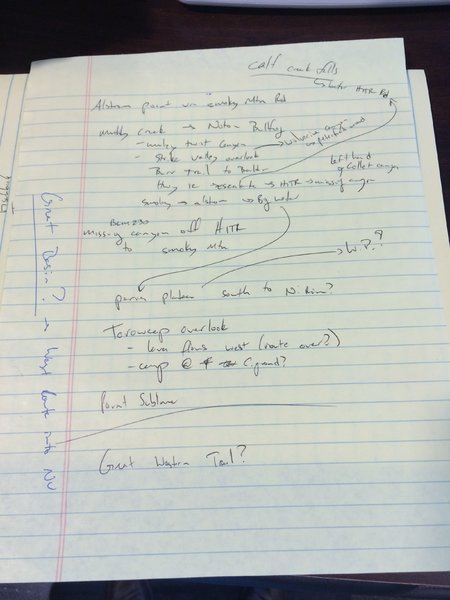 calf creek falls
HITR Rd
Alstrom point via smoky Mtn Rd
muddy creek → Notom Bullfrog
- muley twist Canyon → wolverine canyon
- Strike valley overlook
Burr Trail to Boulder
left hand
of Collet canyon
Hwy 12 → escalante → HITR → missing canyon
smoky → alstrom → Big water
BLM 230
missing canyon off HITR
to smoky Mtn
W.P.?
paria plateau south to N. Rim?
Toroweap overlook
- lava flows west (route over?)
- camp @ C.ground?
Point Sublime
Great Western Trail?
Great Basin? → West Route into NV